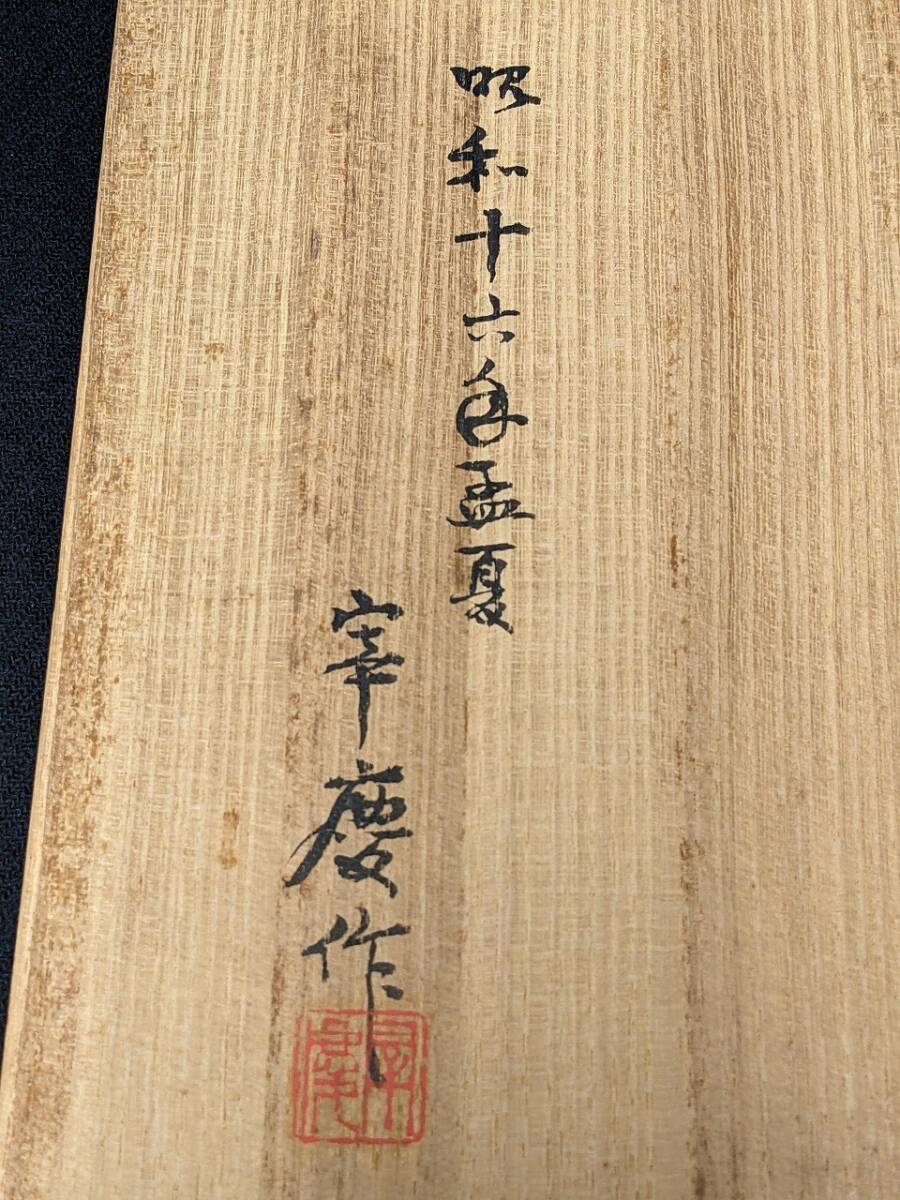 昭和十六年孟夏
宰慶作